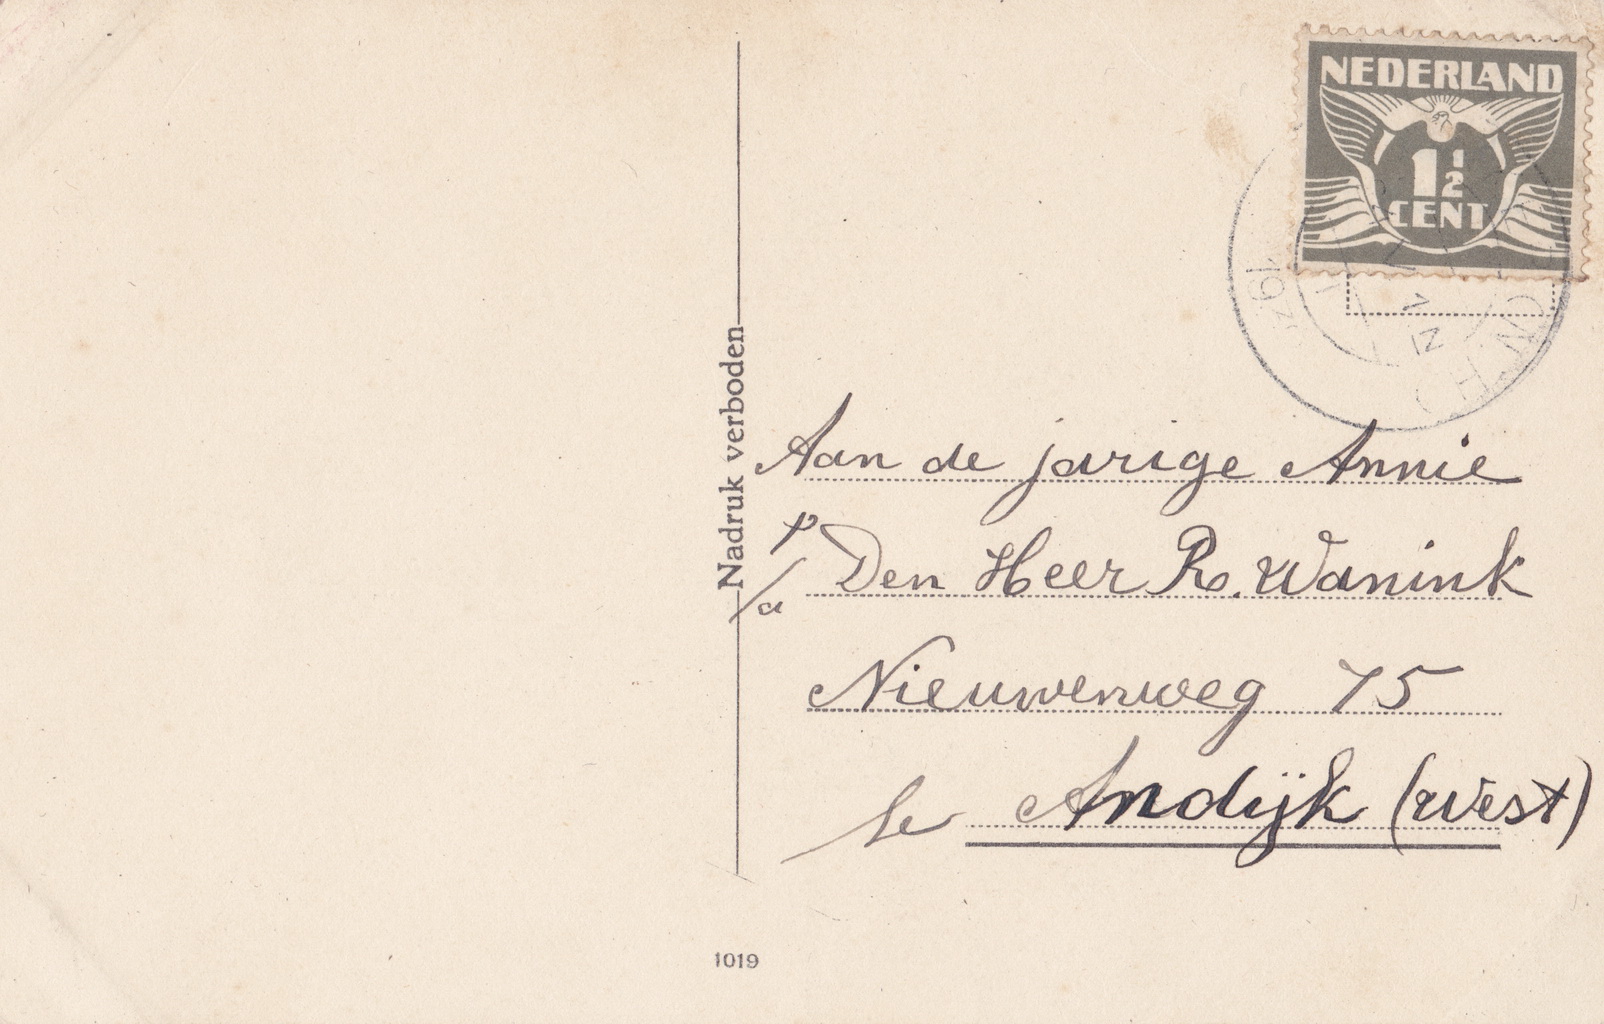 NEDERLAND
1 1/2
CENT
Nadruk verboden
Aan de jarige Annie
p/a Den Heer R. Wanink
Nieuwenweg 75
te Andijk (West)
1019